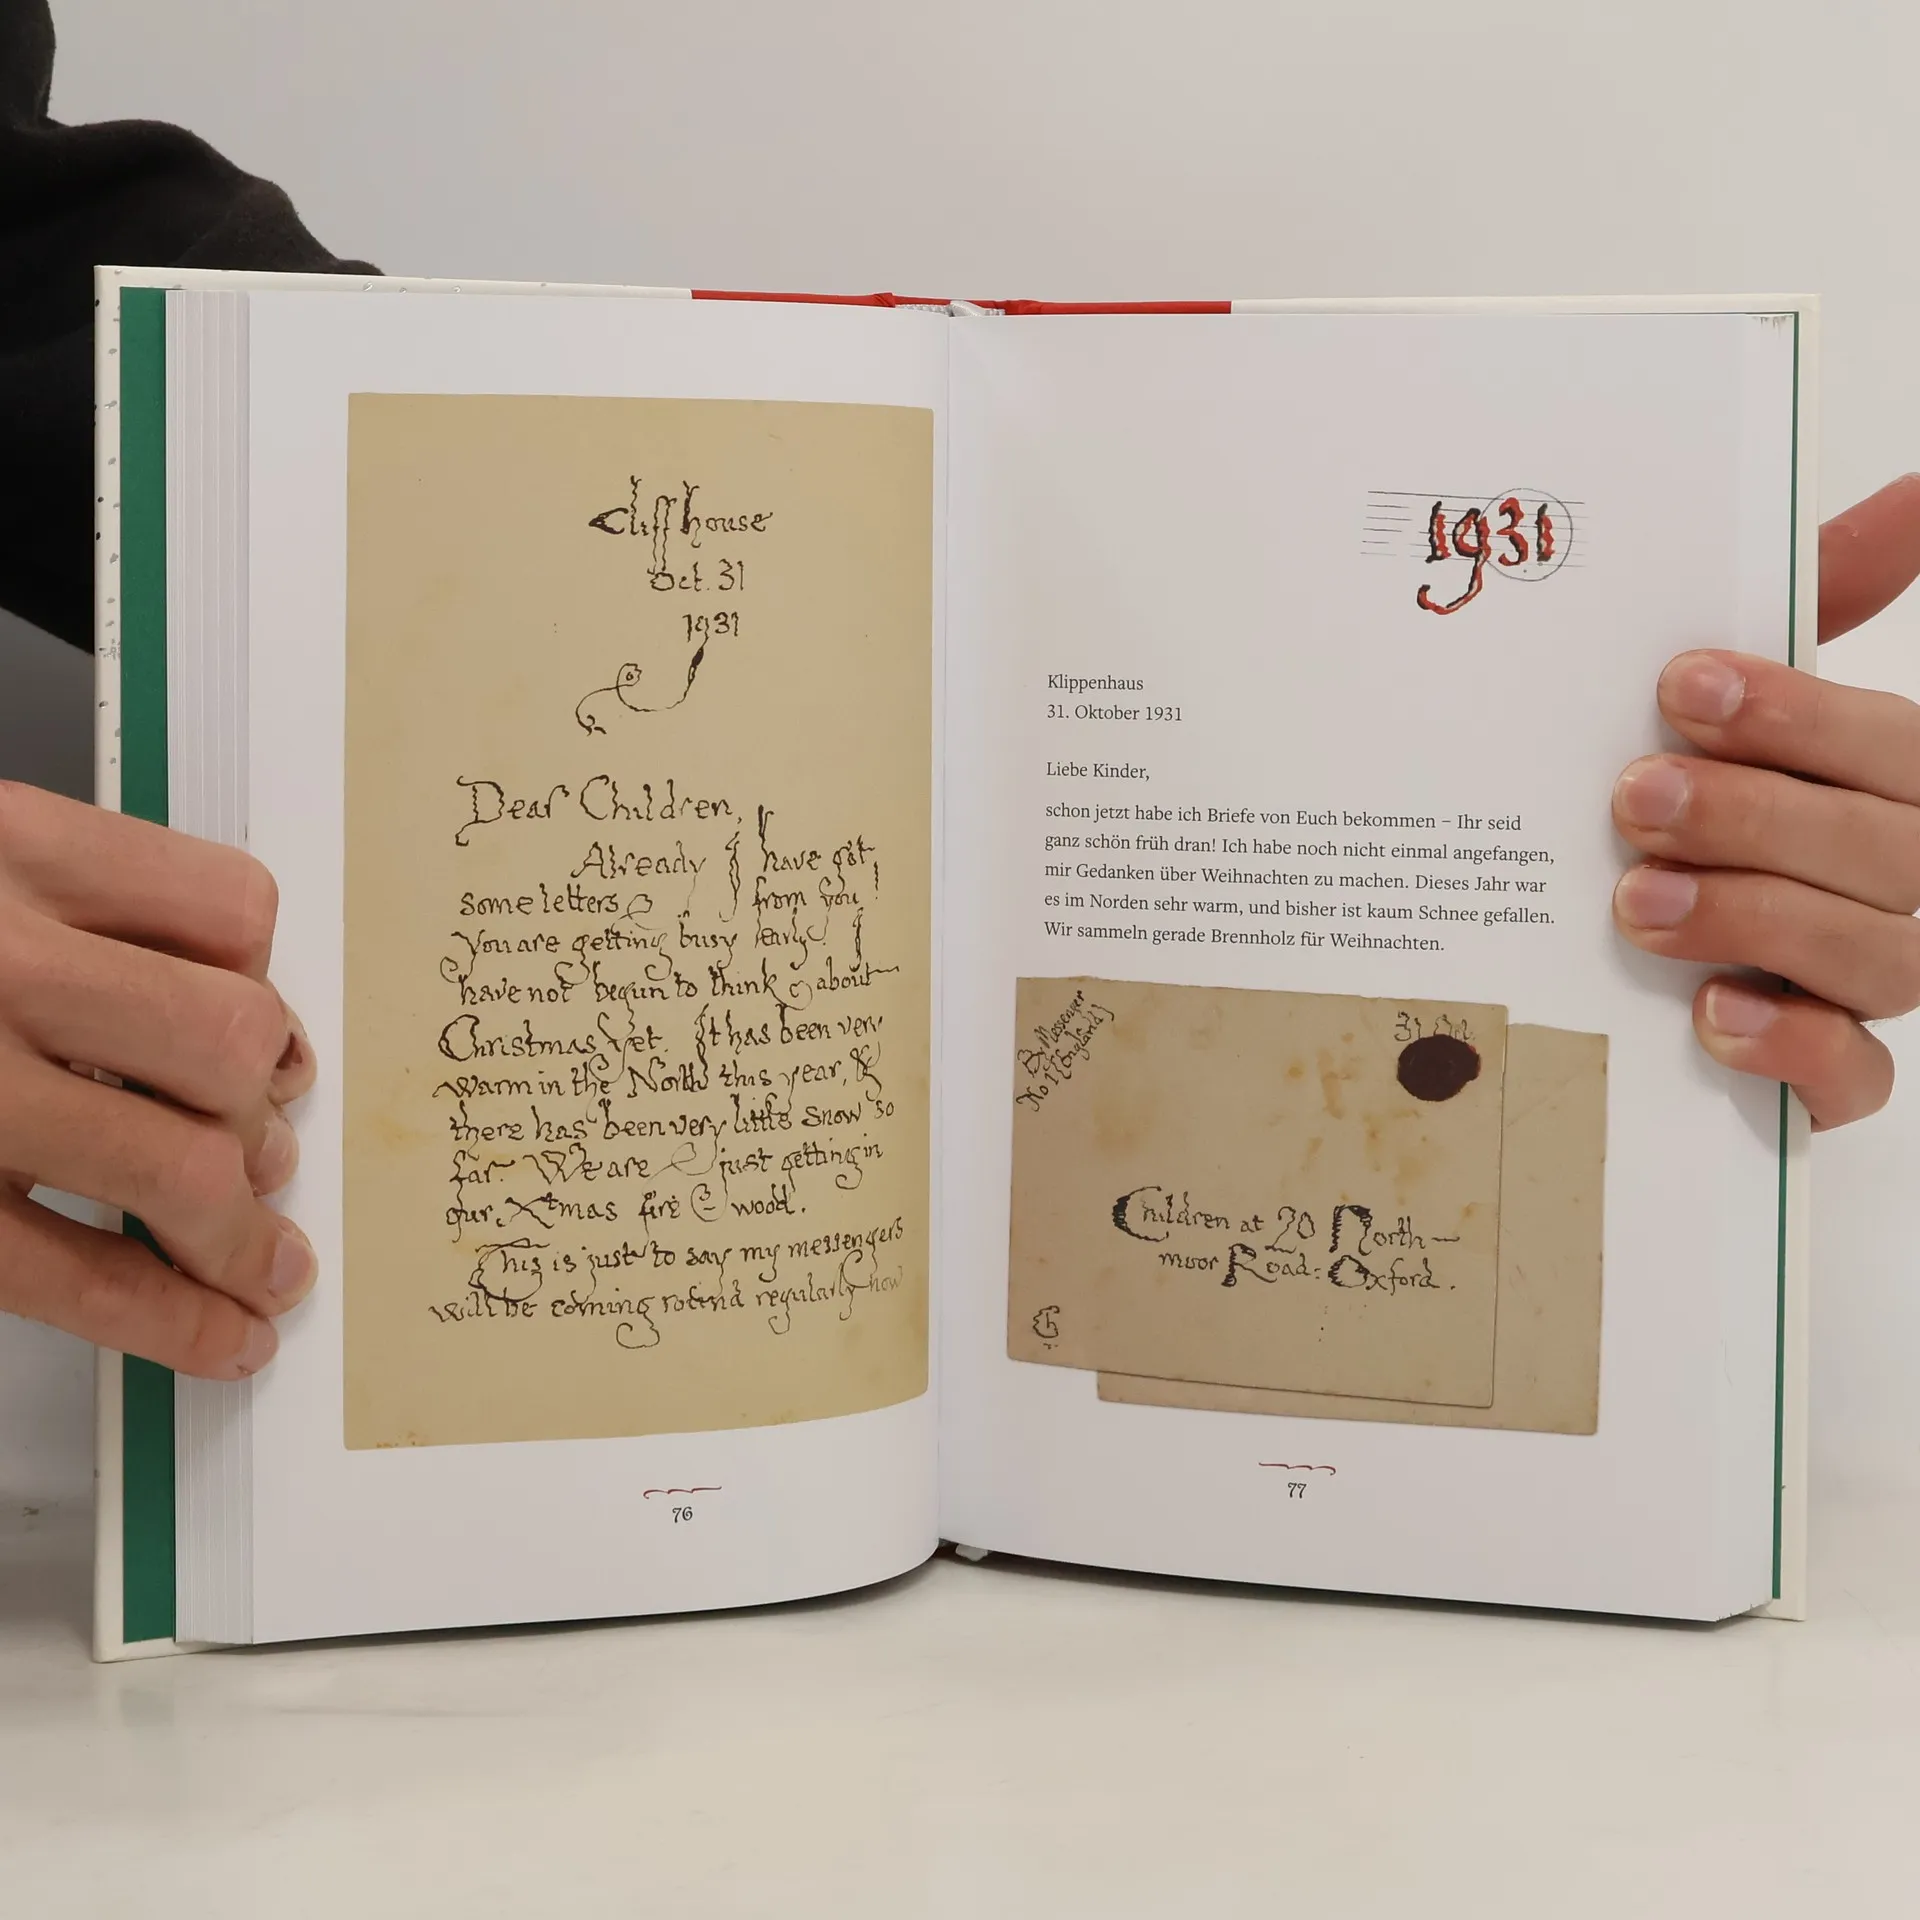 Cliff house
Oct. 31
1931
Dear Children,
Already I have got
some letters from you!
You are getting busy early. I
have not begun to think about
Christmas yet. It has been very
warm in the North this year, &
there has been very little snow so
far. We are just getting in
our Xmas fire wood.
This is just to say my messengers
will be coming round regularly now
76
1931
Klippenhaus
31. Oktober 1931
Liebe Kinder,
schon jetzt habe ich Briefe von Euch bekommen – Ihr seid
ganz schön früh dran! Ich habe noch nicht einmal angefangen,
mir Gedanken über Weihnachten zu machen. Dieses Jahr war
es im Norden sehr warm, und bisher ist kaum Schnee gefallen.
Wir sammeln gerade Brennholz für Weihnachten.
By Messenger
No 1 (England)
31 Oct.
Children at 20 North-
moor Road: Oxford.
77